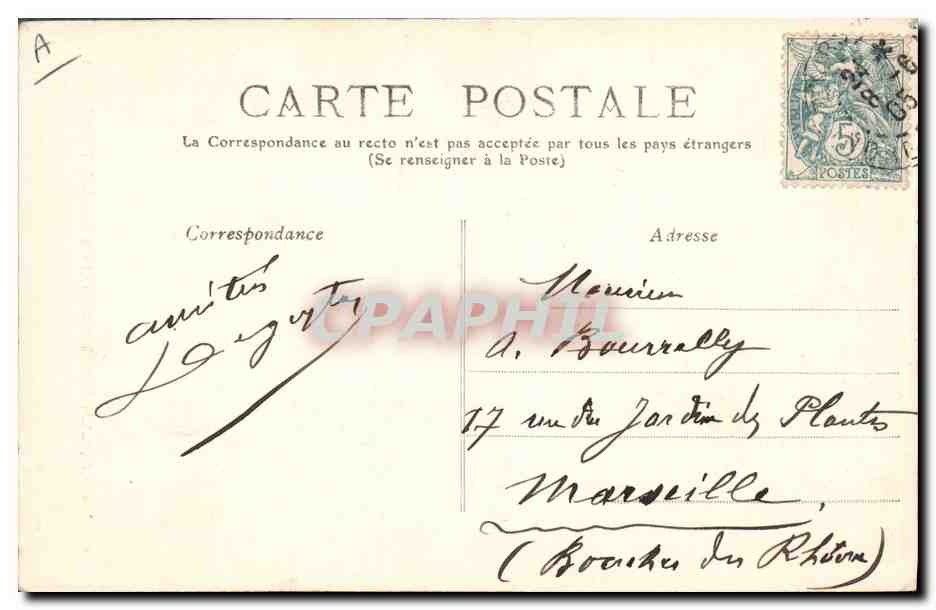 A
CARTE POSTALE
La Correspondance au recto n'est pas acceptée par tous les pays étrangers
(Se renseigner à la Poste)
5c
POSTES
Correspondance
Adresse
amitiés
Monsieur
A. Bourrelly
17 rue du Jardin des Plantes
Marseille
(Bouches du Rhône)
CPAPHIL